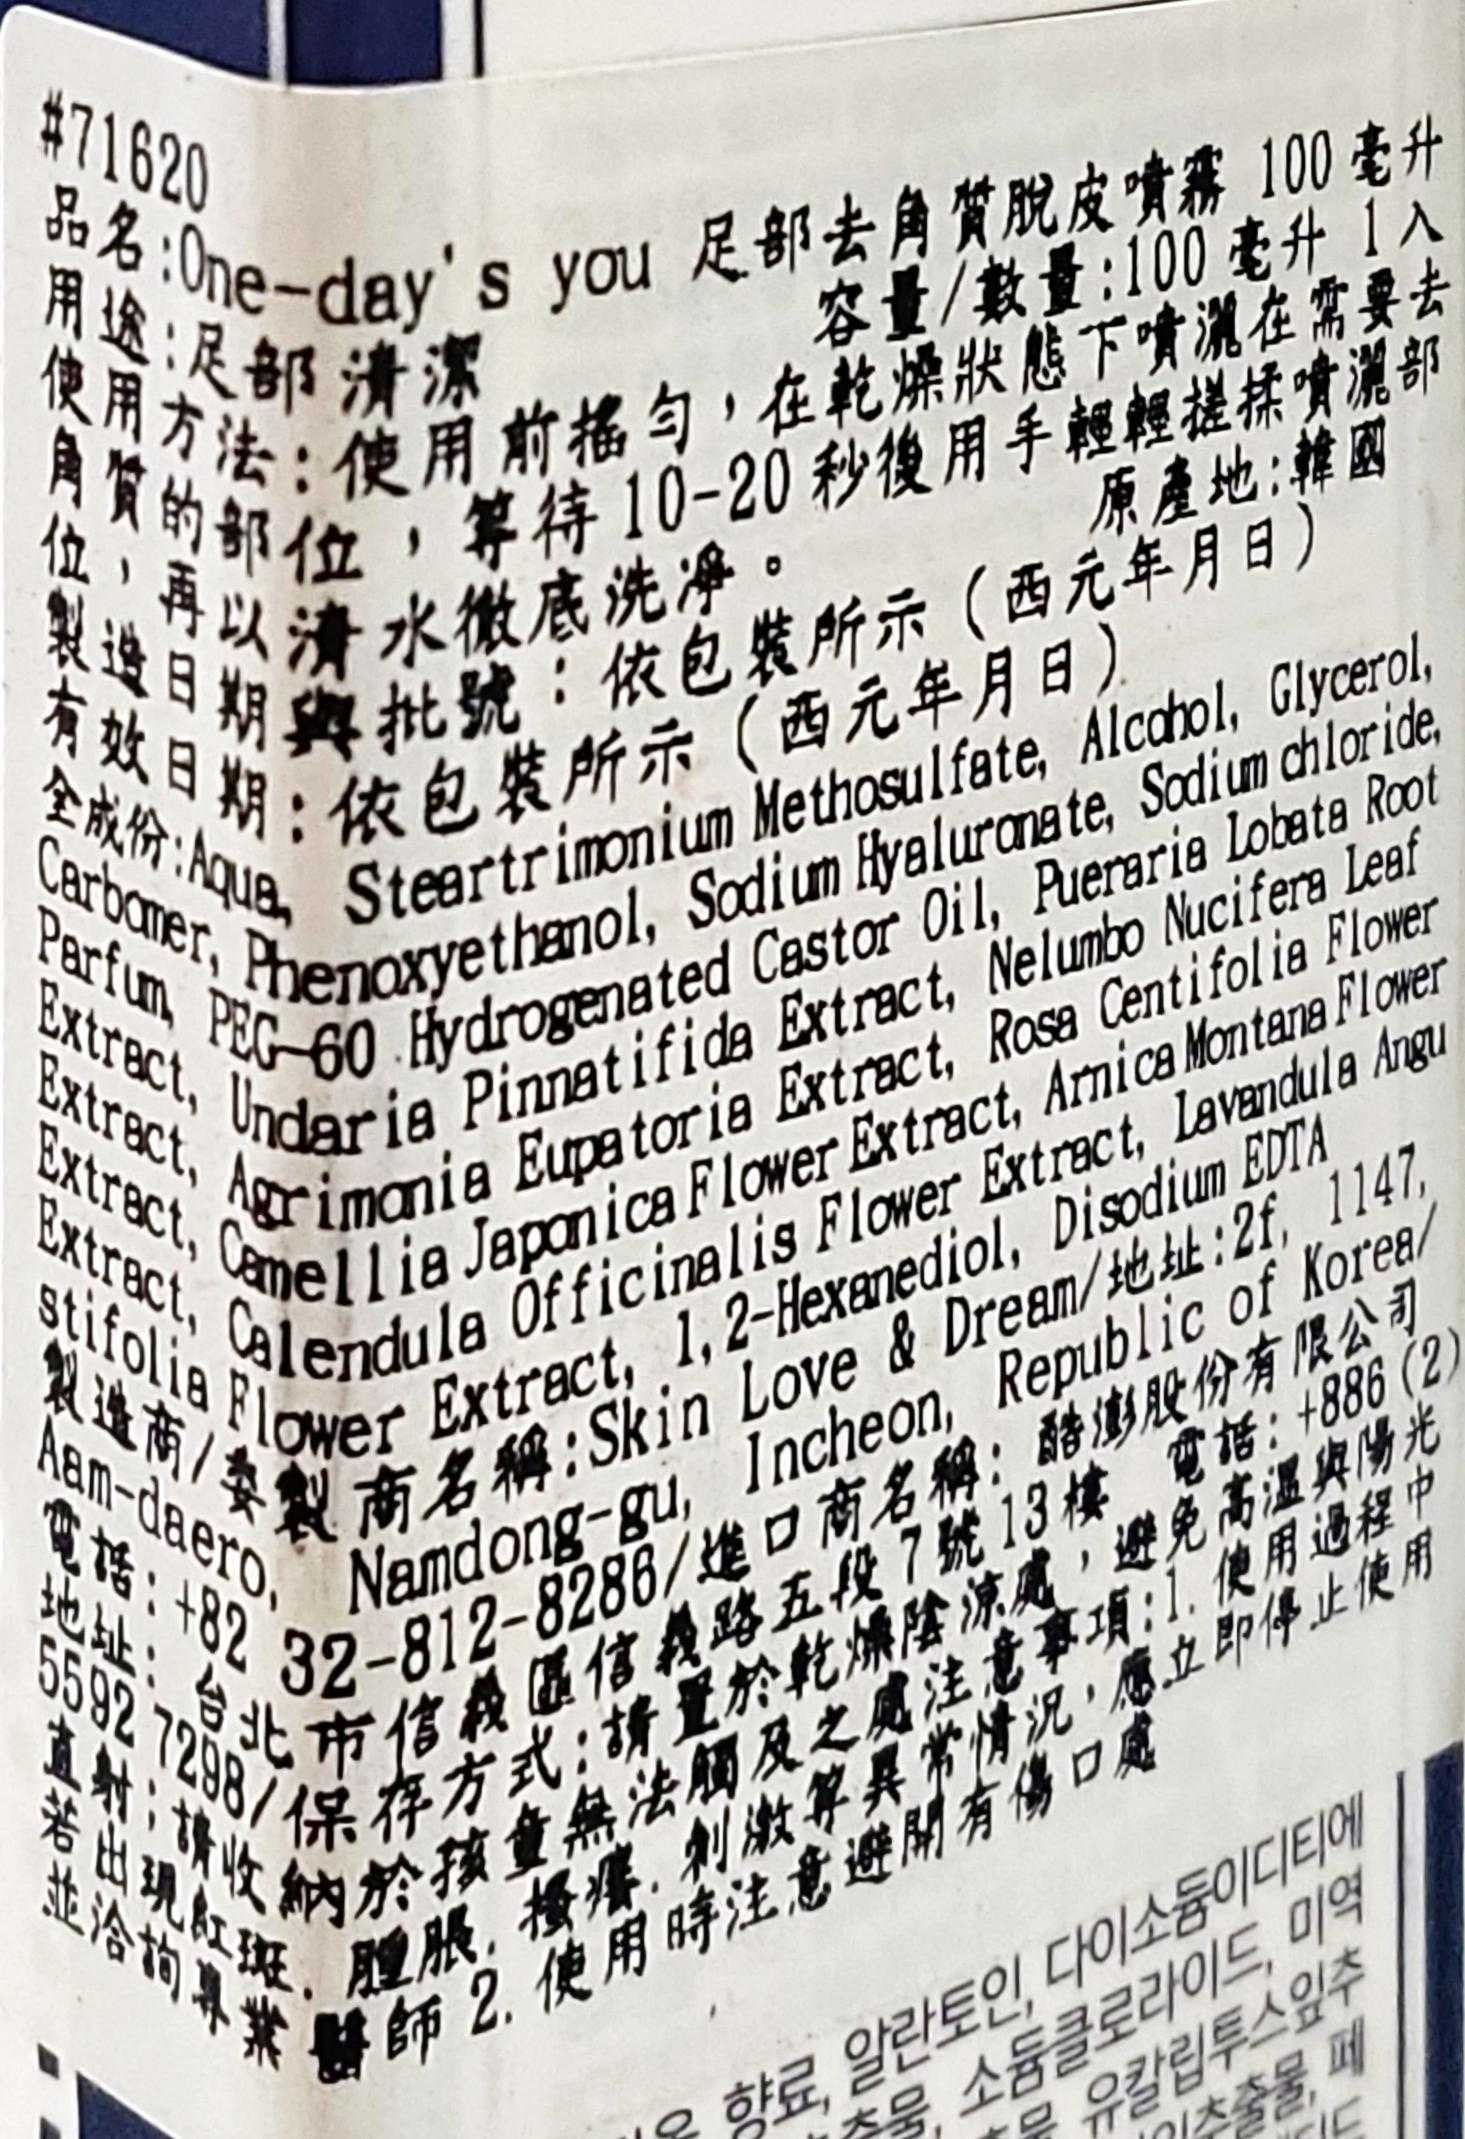 #71620
品名:One-day's you 足部去角質脫皮噴霧 100 毫升
用途:足部清潔 容量/數量:100 毫升 1入
使用方法:使用前搖勻，在乾燥狀態下噴灑在需要去
角質的部位，等待 10-20 秒後用手輕輕搓揉噴灑部
位，再以清水徹底洗淨。 原產地:韓國
製造日期與批號:依包裝所示(西元年月日)
有效日期:依包裝所示(西元年月日)
全成份:Aqua, Steartrimonium Methosulfate, Alcohol, Glycerol,
Carbomer, Phenoxyethanol, Sodium Hyaluronate, Sodium chloride,
Parfum, PEG-60 Hydrogenated Castor Oil, Pueraria Lobata Root
Extract, Undaria Pinnatifida Extract, Nelumbo Nucifera Leaf
Extract, Agrimonia Eupatoria Extract, Rosa Centifolia Flower
Extract, Camellia Japonica Flower Extract, Arnica Montana Flower
Extract, Calendula Officinalis Flower Extract, Lavandula Angu
stifolia Flower Extract, 1,2-Hexanediol, Disodium EDTA
製造商/委製商名稱:Skin Love & Dream/地址:2f, 1147,
Aam-daero, Namdong-gu, Incheon, Republic of Korea/
電話:+82 32-812-8286/進口商名稱:酷澎股份有限公司
地址:台北市信義區信義路五段7號13樓 電話:+886(2)
5592 7298/保存方式:請置於乾燥陰涼處，避免高溫與陽光
直射;請收納於孩童無法觸及之處注意事項:1.使用過程中
若出現紅斑.腫脹.搔癢.刺激等異常情況，應立即停止使用
並洽詢專業醫師 2.使用時注意避開有傷口處
향료, 알란토인, 다이소듐이디티에
추출물, 소듐클로라이드, 미역
유칼립투스잎추
추출물, 페